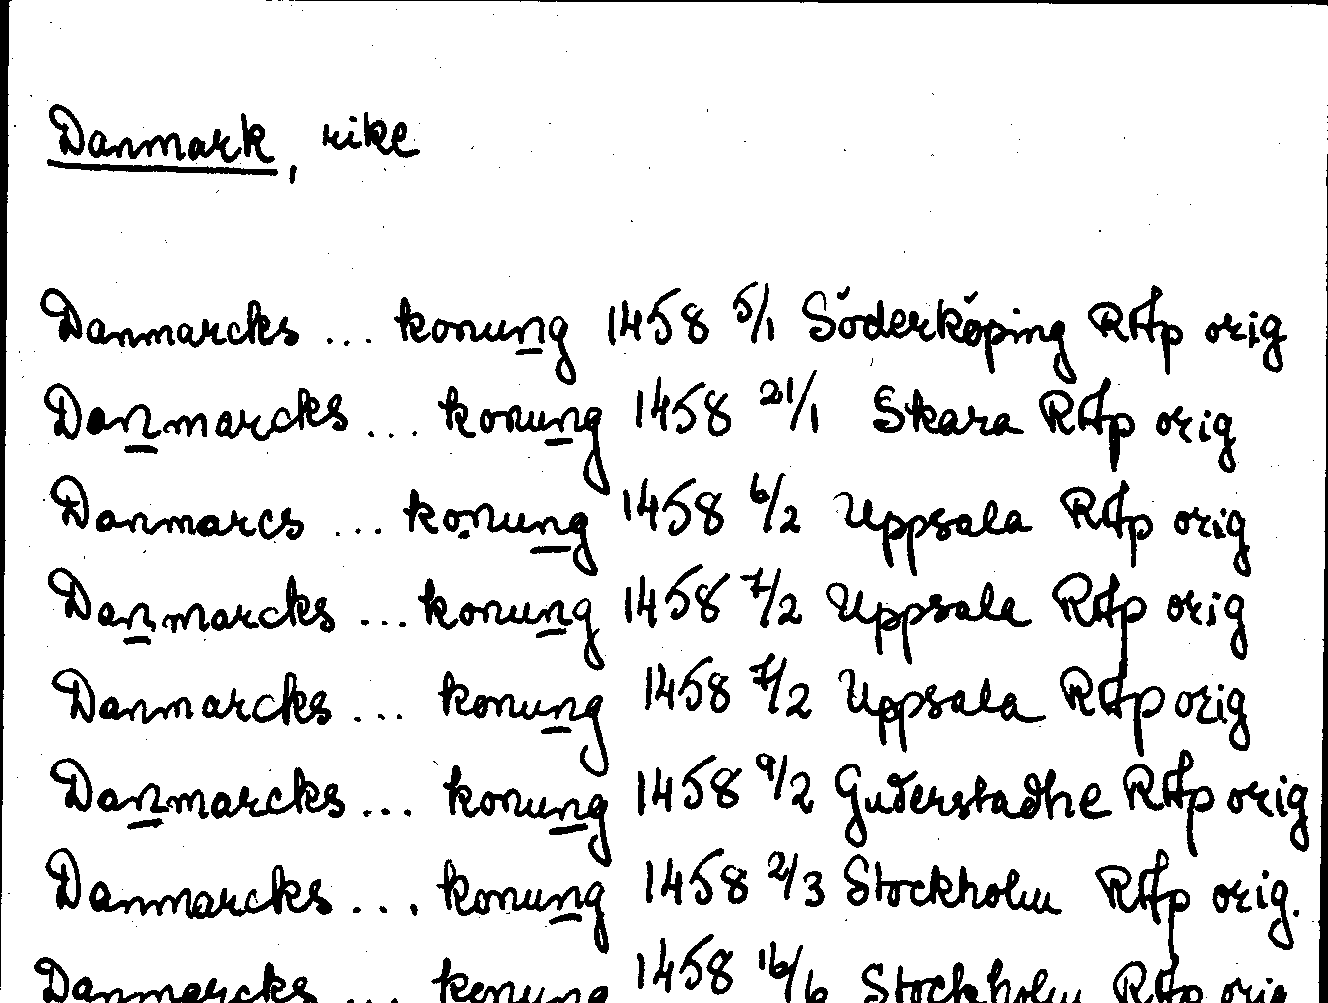 Danmark, rike
Danmarcks ... konung 1458 5/1 Söderköping RAp orig
Danmarcks ... konung 1458 21/1 Skara RAp orig
Danmarcs ... konung 1458 6/2 Uppsala RAp orig
Danmarcks ... konung 1458 7/2 Uppsala RAp orig
Danmarcks ... konung 1458 7/2 Uppsala RAp orig
Danmarcks ... konung 1458 9/2 Guderstadhe RAp orig
Danmarcks ... konung 1458 2/3 Stockholm RAp orig.
Danmarcks ... konung 1458 16/6 Stockholm RAp orig